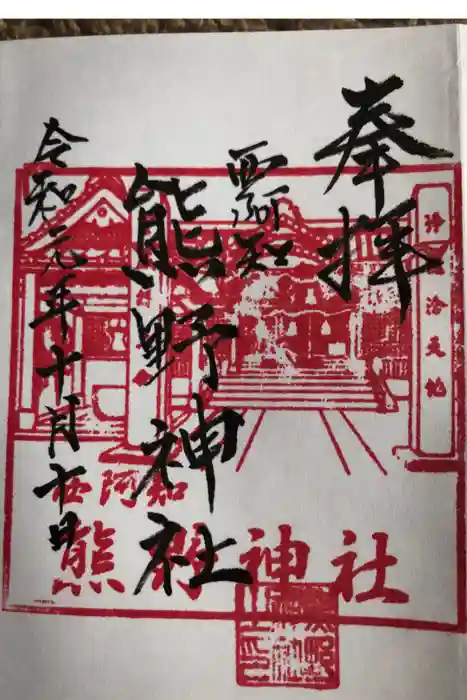 奉拝
西阿知
熊野神社
令和元年十月
西阿知
熊野神社